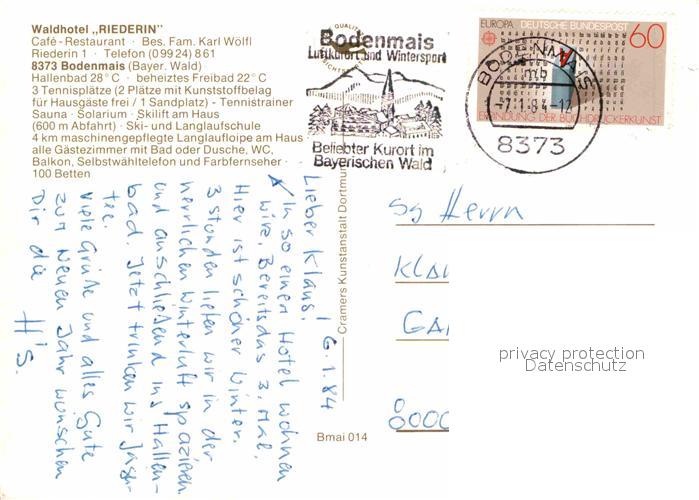 Waldhotel „RIEDERIN"
Café - Restaurant · Bes. Fam. Karl Wölfl
Riederin 1 · Telefon (0 99 24) 8 61
8373 Bodenmais (Bayer. Wald)
Hallenbad 28° C · beheiztes Freibad 22° C
3 Tennisplätze (2 Plätze mit Kunststoffbelag
für Hausgäste frei / 1 Sandplatz) - Tennistrainer
Sauna · Solarium · Skilift am Haus
(600 m Abfahrt) · Ski- und Langlaufschule
4 km maschinengepflegte Langlaufloipe am Haus
alle Gästezimmer mit Bad oder Dusche, WC,
Balkon, Selbstwähltelefon und Farbfernseher ·
100 Betten
Bodenmais
Luftkurort und Wintersport
Beliebter Kurort im
Bayerischen Wald
EUROPA DEUTSCHE BUNDESPOST
60
ERFINDUNG DER BUCHDRUCKERKUNST
BODENMAIS
mb
-7.1.84-12
8373
6.1.84
Lieber Klaus!
In so einem Hotel wohnen
wir. Bereits das 3. Mal.
Hier ist schöner Winter.
3 Stunden liefen wir in der
herrlichen Winterluft spazieren
und anschließend ins Hallen-
bad. Jetzt trinken wir Jäger-
tee.
Viele Grüße und alles Gute
zum Neuen Jahr wünschen
Dir die
H's.
Cramers Kunstanstalt Dortmund
Bmai 014
Herrn
8000
privacy protection
Datenschutz